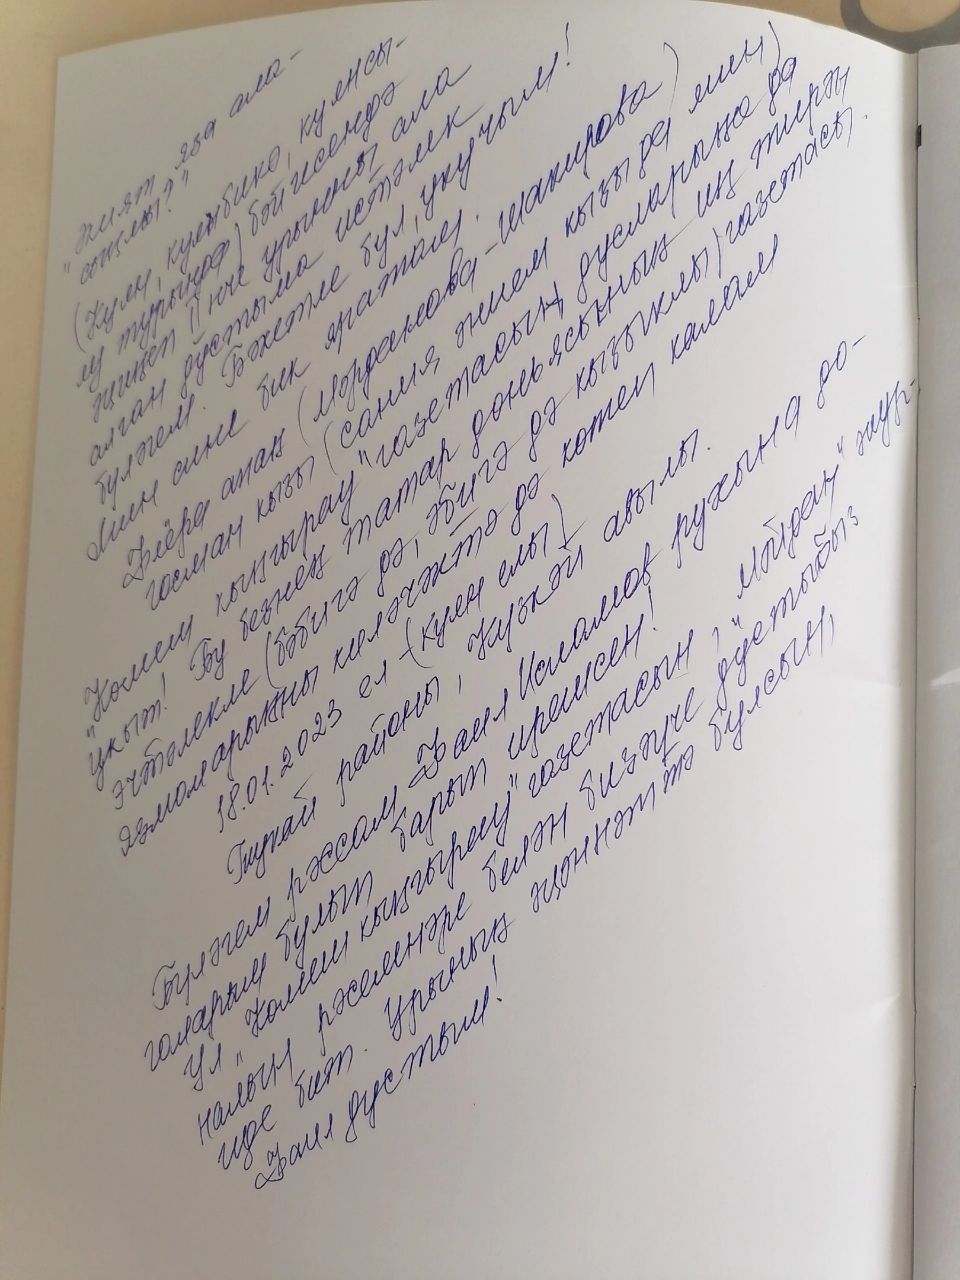 "Әкият яза ала-
сыңмы?"
(Куян, куянбикә, куянкы-
лу турында) бәйгесендә
җиңеп II нче урынны ала
алган дустыма истәлек
бүләгем. Бәхетле бул, укучым!
Мин сине бик яратам.
Флёра апаң (Морданова-Шакирова)
Госман кызы (Сания әнием кызы да мин)
"Көмеш кыңгырау" газетасын дусларыңа да
укыт! Бу безнең татар дөньясының иң тирән
эчтәлекле (бәбигә дә, әбигә дә кызыклы) газетасы.
Язмаларыңны киләчәктә дә көтеп калам
18.01.2023 ел (куян елы)
Тукай районы, Күзкәй авылы.
Бүләгем рәссам Фаил Исламов рухына до-
галарым булып барып ирешсен!
Ул "Көмеш кыңгырау" газетасын, "Мәйдан" жур-
налын рәсемнәре белән бизәүче дустыбыз
иде бит. Урының җәннәттә булсын,
Фаил дустым!